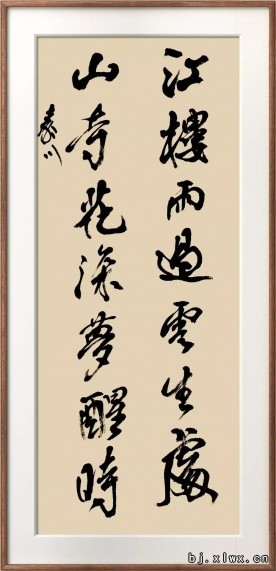 江樓雨過雲生處
山寺花深夢醒時
bj.xlwx.cn